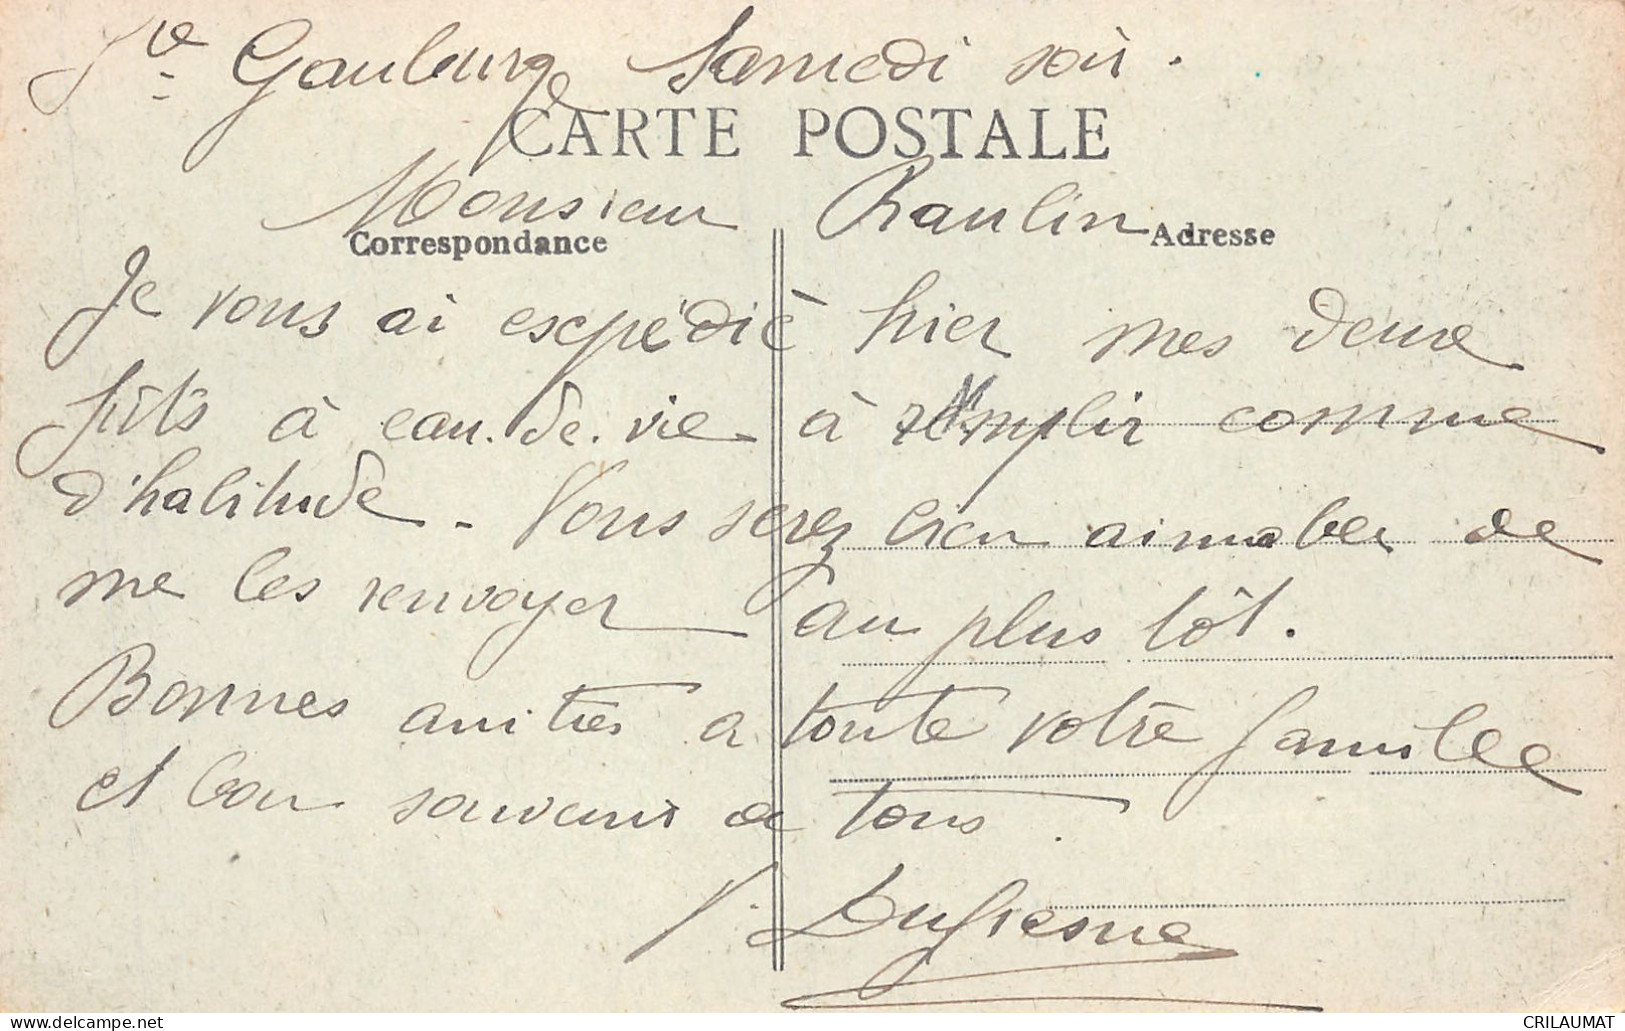 Ste Gauburge Samedi soir.
CARTE POSTALE
Monsieur Raulin
Correspondance Adresse
Je vous ai expédié hier mes deux
fûts à eau.de.vie à remplir comme
d'habitude - Vous serez bien aimable de
me les renvoyer au plus tôt.
Bonnes amitiés à toute votre famille
et bon souvenir de tous.
J. Dufresne
CRILAUMAT